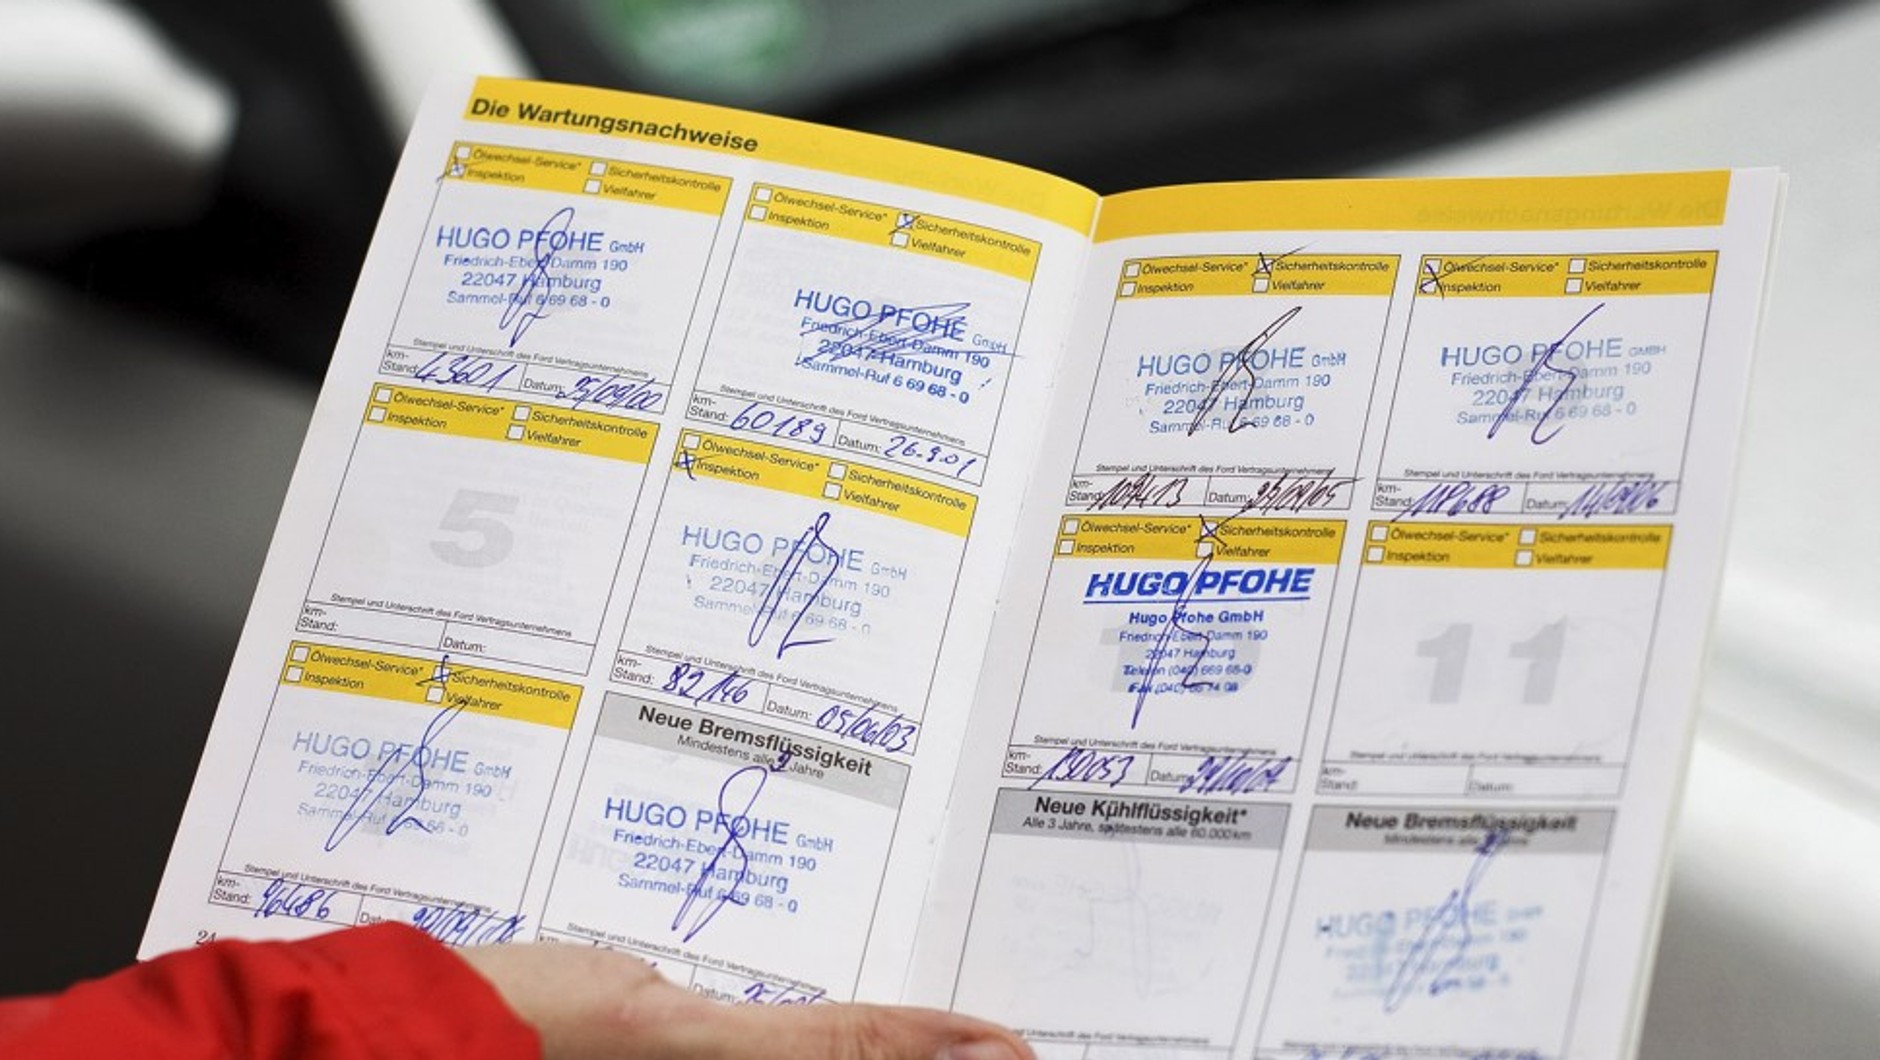 Die Wartungsnachweise
Ölwechsel-Service* Sicherheitskontrolle
Inspektion Vielfahrer
HUGO PFOHE GmbH
Friedrich-Ebert-Damm 190
22047 Hamburg
Sammel-Ruf 6 69 68 - 0
Stempel und Unterschrift des Ford Vertragsunternehmens
km-
Stand: 43601 Datum: 25/09/00
Ölwechsel-Service* Sicherheitskontrolle
Inspektion Vielfahrer
HUGO PFOHE GmbH
Friedrich-Ebert-Damm 190
22047 Hamburg
Sammel-Ruf 6 69 68 - 0
Stempel und Unterschrift des Ford Vertragsunternehmens
km-
Stand: 60189 Datum: 26.9.01
Ölwechsel-Service* Sicherheitskontrolle
Inspektion Vielfahrer
5
Stempel und Unterschrift des Ford Vertragsunternehmens
km-
Stand: Datum:
Ölwechsel-Service* Sicherheitskontrolle
Inspektion Vielfahrer
HUGO PFOHE GmbH
Friedrich-Ebert-Damm 190
22047 Hamburg
Sammel-Ruf 6 69 68 - 0
Stempel und Unterschrift des Ford Vertragsunternehmens
km-
Stand: 82146 Datum: 05/06/03
Ölwechsel-Service* Sicherheitskontrolle
Inspektion Vielfahrer
HUGO PFOHE GmbH
Friedrich-Ebert-Damm 190
22047 Hamburg
Sammel-Ruf 6 69 68 - 0
Stempel und Unterschrift des Ford Vertragsunternehmens
km-
Stand: 96486
24
Neue Bremsflüssigkeit
Mindestens alle 2 Jahre
HUGO PFOHE GmbH
Friedrich-Ebert-Damm 190
22047 Hamburg
Sammel-Ruf 6 69 68 - 0
Stempel und Unterschrift des Ford Vertragsunternehmens
Datum:
Ölwechsel-Service* Sicherheitskontrolle
Inspektion Vielfahrer
HUGO PFOHE GmbH
Friedrich-Ebert-Damm 190
22047 Hamburg
Sammel-Ruf 6 69 68 - 0
Stempel und Unterschrift des Ford Vertragsunternehmens
km-
Stand: 109413 Datum:
Ölwechsel-Service* Sicherheitskontrolle
Inspektion Vielfahrer
HUGO PFOHE GMBH
Friedrich-Ebert-Damm 190
22047 Hamburg
Sammel-Ruf 6 69 68 - 0
Stempel und Unterschrift des Ford Vertragsunternehmens
km-
Stand: 118688 Datum:
Ölwechsel-Service* Sicherheitskontrolle
Inspektion Vielfahrer
HUGO PFOHE
Hugo Pfohe GmbH
Friedrich-Ebert-Damm 190
22047 Hamburg
Telefon (040) 669 68-0
Fax (040)
Stempel und Unterschrift des Ford Vertragsunternehmens
km-
Stand: 130053 Datum:
Ölwechsel-Service* Sicherheitskontrolle
Inspektion Vielfahrer
11
Stempel und Unterschrift des Ford Vertragsunternehmens
km-
Stand: Datum:
Neue Kühlflüssigkeit*
Alle 3 Jahre, spätestens alle 60.000 km
Neue Bremsflüssigkeit
Mindestens alle 2 Jahre
HUGO PFOHE GmbH